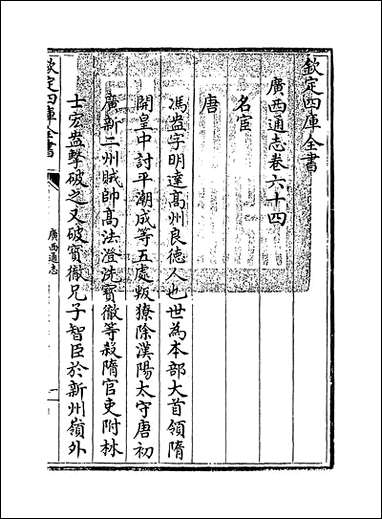 欽定四庫全書
廣西通志卷六十四
名宦
唐
馮盎字明達髙州良徳人也世為本部大首領隋
開皇中討平潮成等五處叛獠除漢陽太守唐初
廣新二州賊帥髙法澄沈寶徹等殺隋官吏附林
士宏盎擊破之又破寳徹兄子智臣於新州嶺外
欽定四庫全書
廣西通志
一